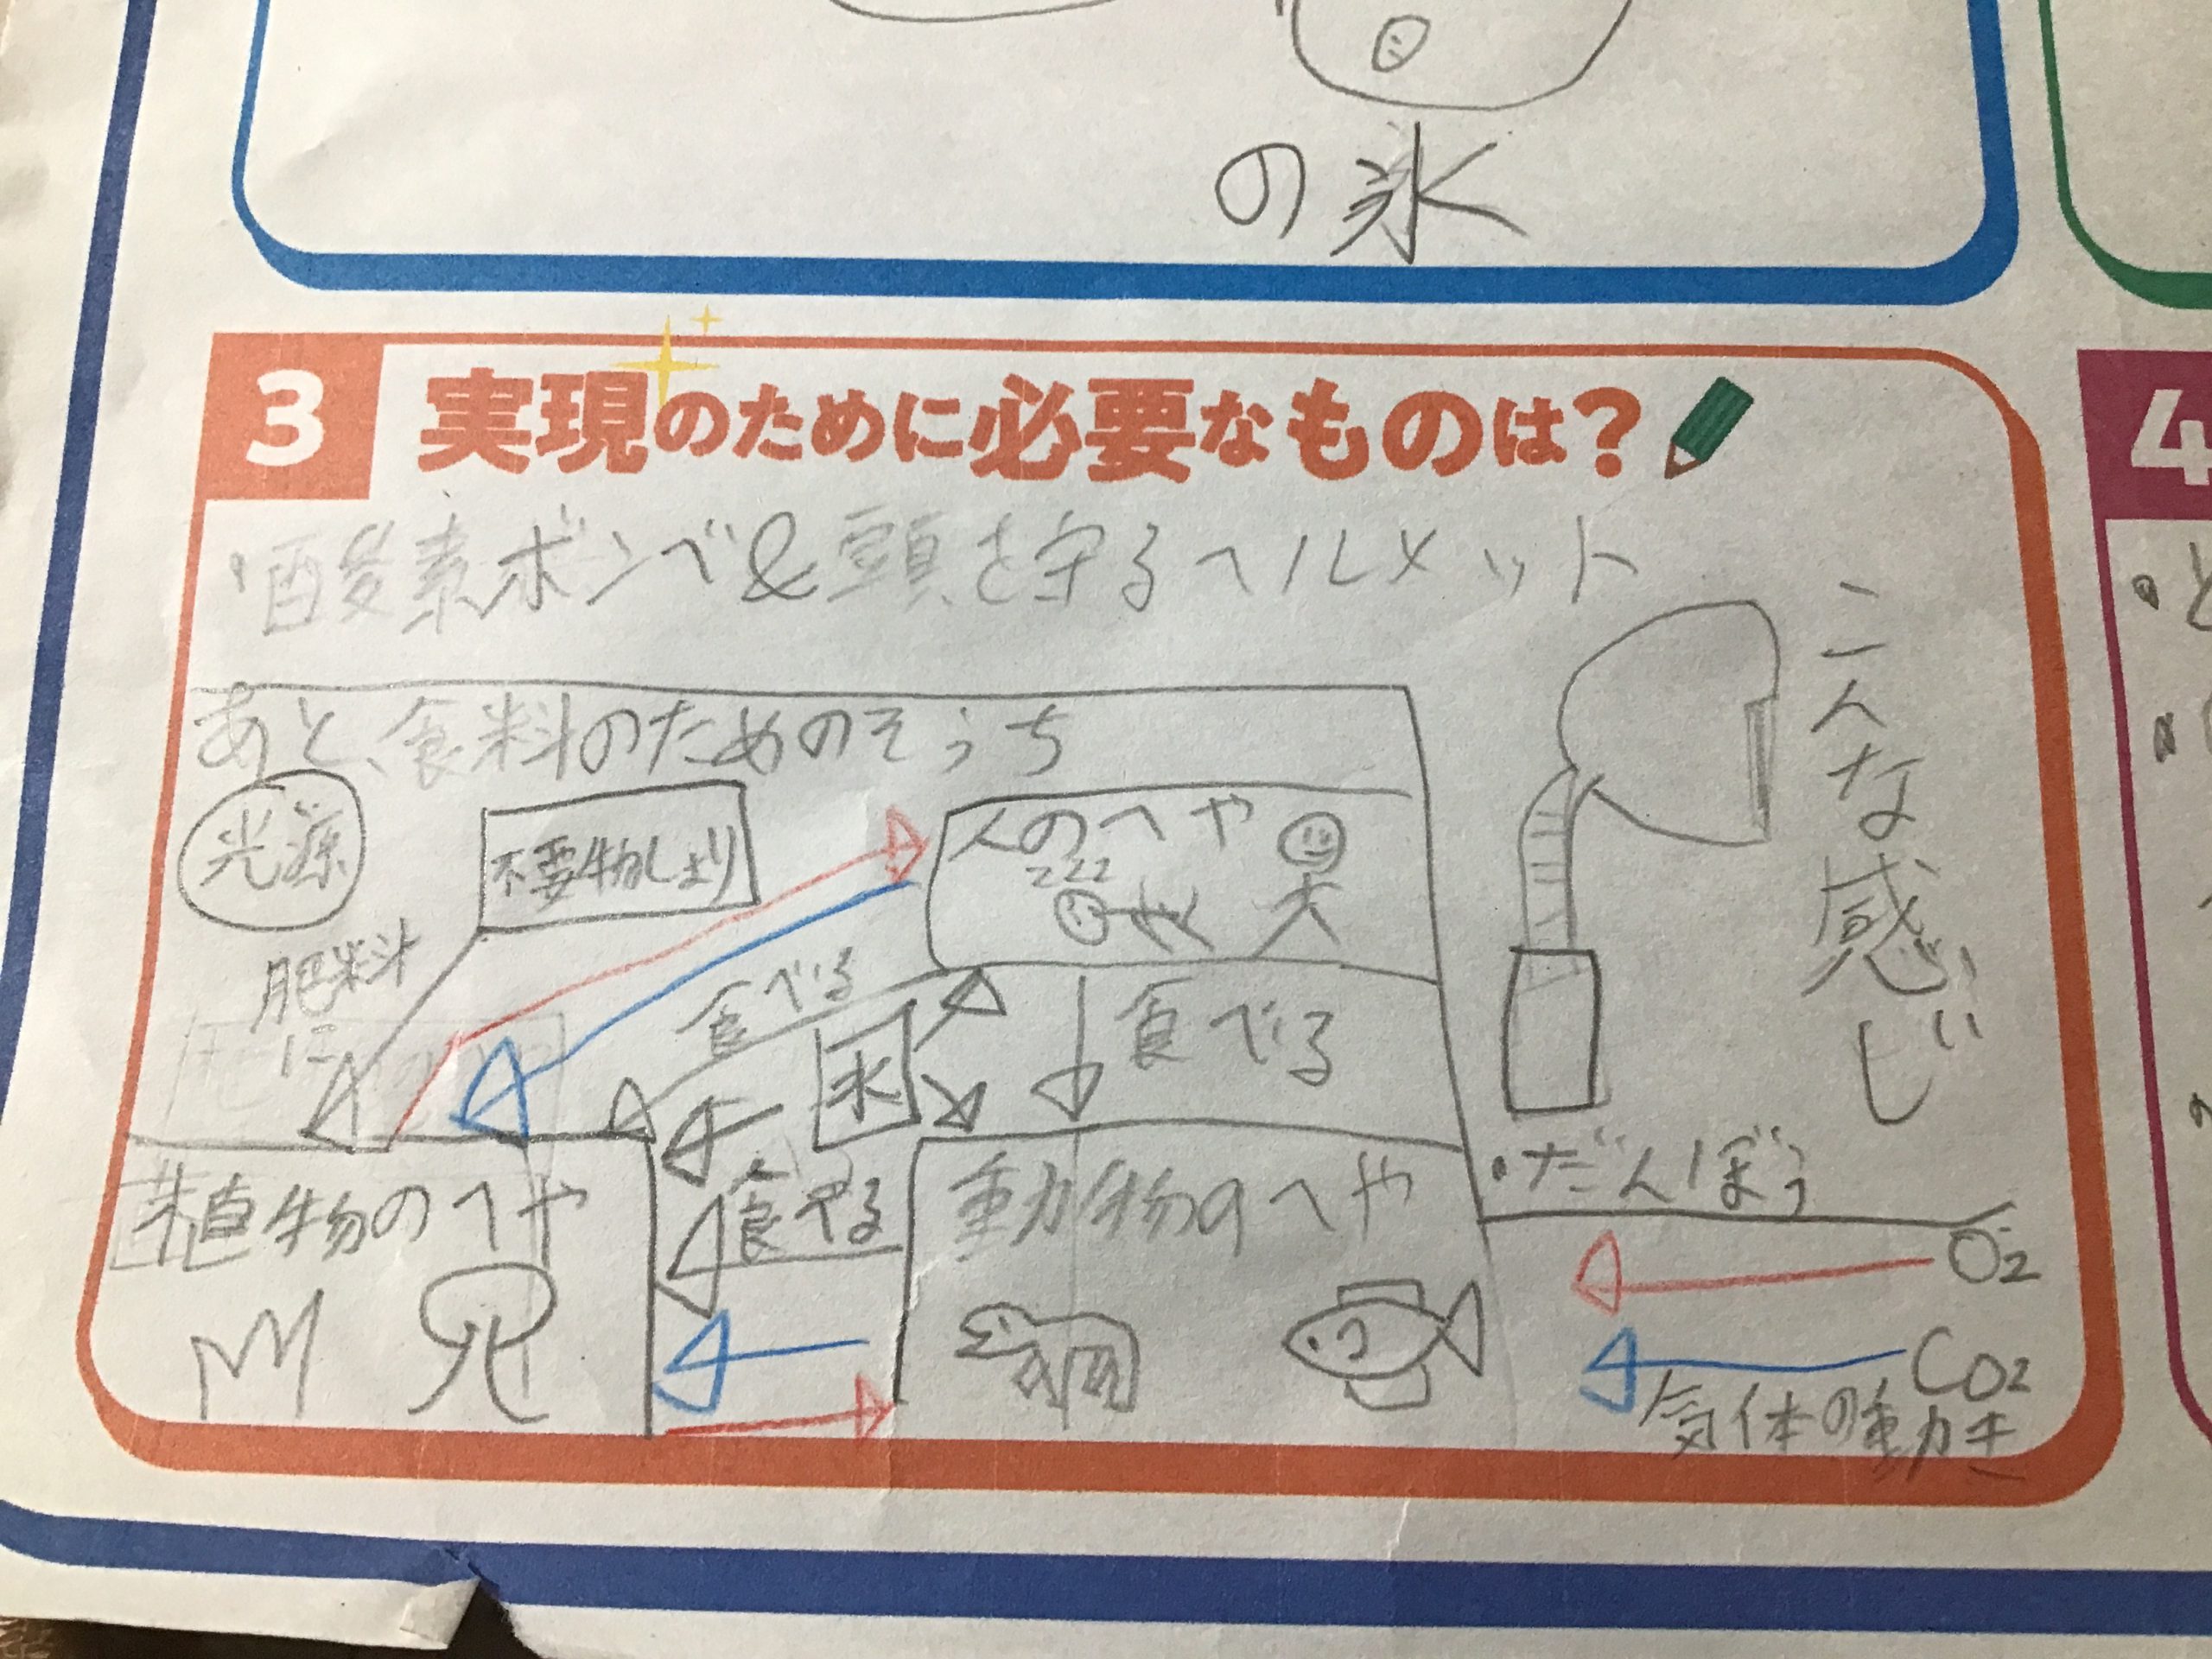 の氷
3 実現のために必要なものは?
4
・酸素ボンベ&頭を守るヘルメット
こんな感じ
あと、食料のためのそうち
光源
不要物しより
人のへや
zzz
肥料に
食べる
水
食べる
・だんぼう
植物のへや
食べる
動物のへや
O2
CO2
気体の動き
・と